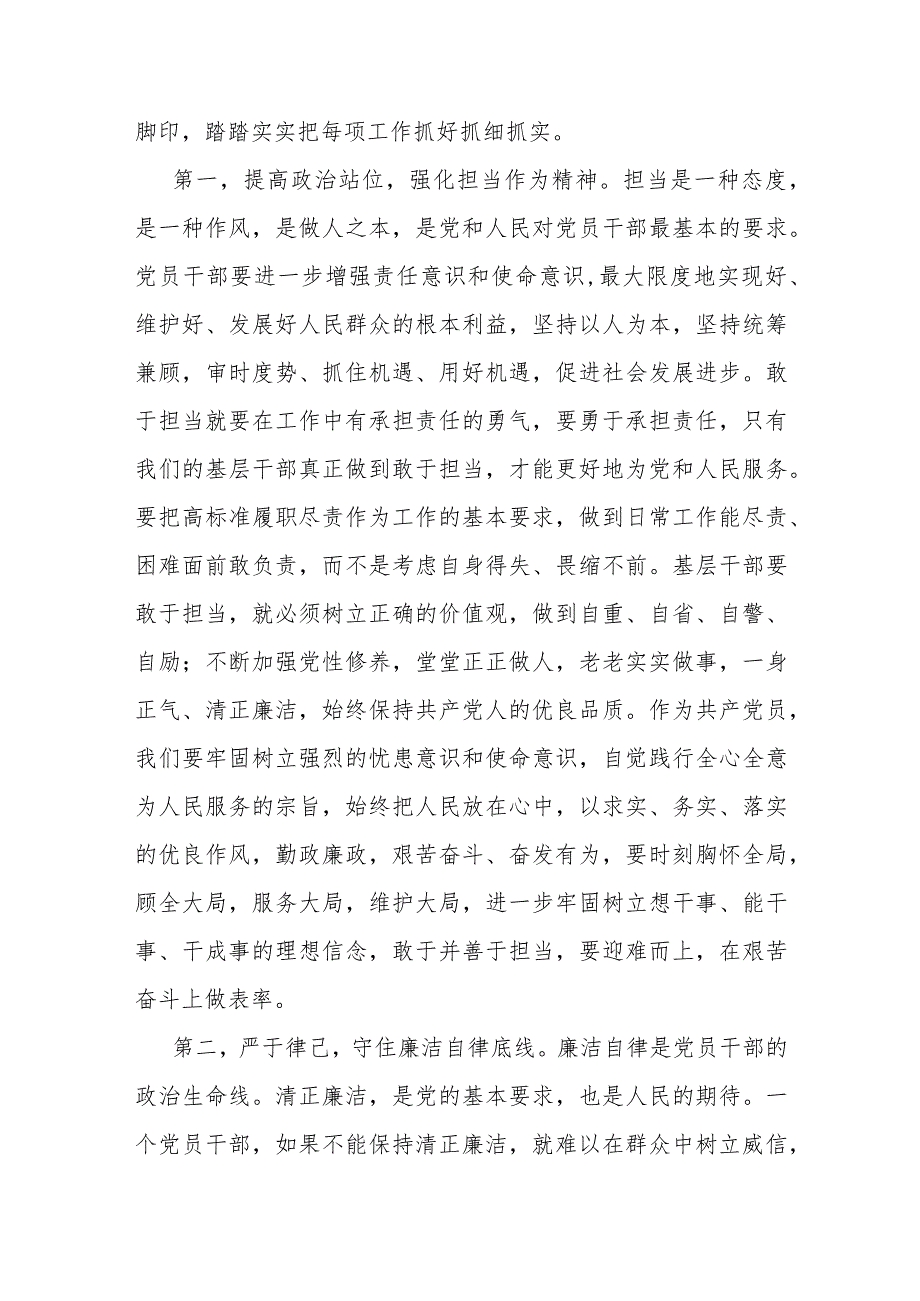 脚印，踏踏实实把每项工作抓好抓细抓实。
第一，提高政治站位，强化担当作为精神。担当是一种态度，
是一种作风，是做人之本，是党和人民对党员干部最基本的要求。
党员干部要进一步增强责任意识和使命意识,最大限度地实现好、
维护好、发展好人民群众的根本利益，坚持以人为本，坚持统筹
兼顾，审时度势、抓住机遇、用好机遇，促进社会发展进步。敢
于担当就要在工作中有承担责任的勇气，要勇于承担责任，只有
我们的基层干部真正做到敢于担当，才能更好地为党和人民服务。
要把高标准履职尽责作为工作的基本要求，做到日常工作能尽责、
困难面前敢负责，而不是考虑自身得失、畏缩不前。基层干部要
敢于担当，就必须树立正确的价值观，做到自重、自省、自警、
自励；不断加强党性修养，堂堂正正做人，老老实实做事，一身
正气、清正廉洁，始终保持共产党人的优良品质。作为共产党员，
我们要牢固树立强烈的忧患意识和使命意识，自觉践行全心全意
为人民服务的宗旨，始终把人民放在心中，以求实、务实、落实
的优良作风，勤政廉政，艰苦奋斗、奋发有为，要时刻胸怀全局，
顾全大局，服务大局，维护大局，进一步牢固树立想干事、能干
事、干成事的理想信念，敢于并善于担当，要迎难而上，在艰苦
奋斗上做表率。
第二，严于律己，守住廉洁自律底线。廉洁自律是党员干部的
政治生命线。清正廉洁，是党的基本要求，也是人民的期待。一
个党员干部，如果不能保持清正廉洁，就难以在群众中树立威信，